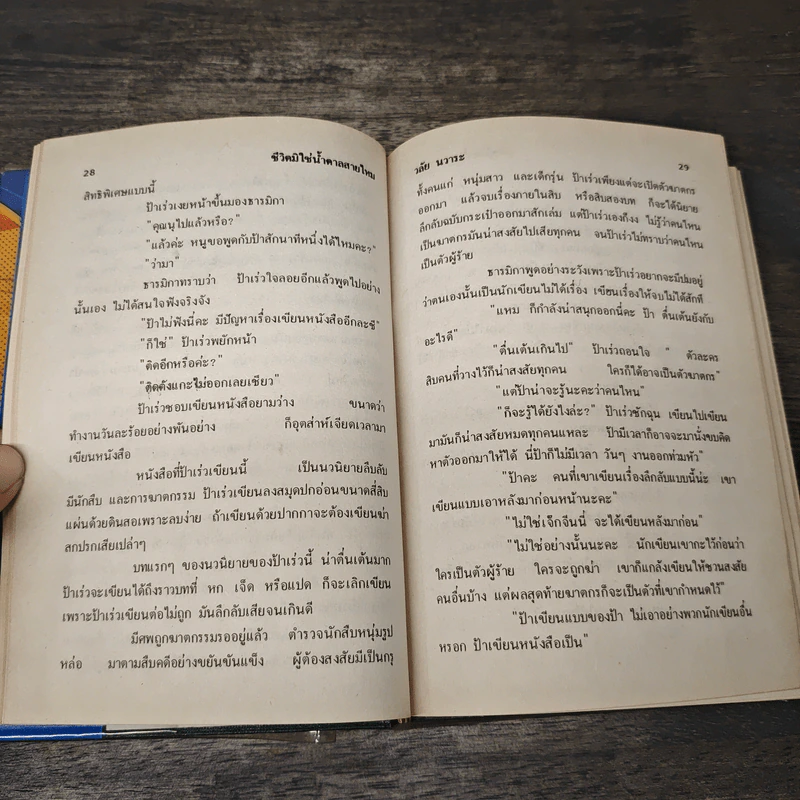 28
ชีวิตมิใช่น้ำตาลสายไหม
สิทธิพิเศษแบบนี้
ป้าเร่วเงยหน้าขึ้นมองธารมิกา
"คุณนุไปแล้วหรือ?"
"แล้วค่ะ หนูขอพูดกับป้าสักนาทีหนึ่งได้ไหมคะ?"
"ว่ามา"
ธารมิกาทราบว่า ป้าเร่วใจลอยอีกแล้วพูดไปอย่าง
นั้นเอง ไม่ได้สนใจฟังจริงจัง
"ป้าไม่ฟังนี่คะ มีปัญหาเรื่องเขียนหนังสืออีกละซี"
"ก็ใช่" ป้าเร่วพยักหน้า
"ติดอีกหรือค่ะ?"
"ติดตังแกะไม่ออกเลยเชียว"
ป้าเร่วชอบเขียนหนังสือยามว่าง ขนาดว่า
ทำงานวันละร้อยอย่างพันอย่าง ก็อุตส่าห์เจียดเวลามา
เขียนหนังสือ
หนังสือที่ป้าเร่วเขียนนี้ เป็นนวนิยายลึบลับ
มีนักสืบ และการฆาตกรรม ป้าเร่วเขียนลงสมุดปกอ่อนขนาดสี่สิบ
แผ่นด้วยดินสอเพราะลบง่าย ถ้าเขียนด้วยปากกาจะต้องเขียนฆ่า
สกปรกเสียเปล่าๆ
บทแรกๆ ของนวนิยายของป้าเร่วนี้ น่าตื่นเต้นมาก
ป้าเร่วจะเขียนได้ถึงราวบทที่ หก เจ็ด หรือแปด ก็จะเลิกเขียน
เพราะป้าเร่วเขียนต่อไม่ถูก มันลึกลับเสียจนเกินดี
มีศพถูกฆาตกรรมรออยู่แล้ว ตำรวจนักสืบหนุ่มรูป
หล่อ มาตามสืบคดีอย่างขยันขันแข็ง ผู้ต้องสงสัยมีเป็นกรุ
วลัย นวาระ
29
ทั้งคนแก่ หนุ่มสาว และเด็กรุ่น ป้าเร่วเพียงแต่จะเปิดตัวฆาตกร
ออกมา แล้วจบเรื่องภายในสิบ หรือสิบสองบท ก็จะได้นิยาย
ลึกลับฉบับกระเป๋าออกมาสักเล่ม แต่ป้าเร่วเองก็งง ไม่รู้ว่าคนไหน
เป็นฆาตกรมันน่าสงสัยไปเสียทุกคน จนป้าเร่วไม่ทราบว่าคนไหน
เป็นตัวผู้ร้าย
ธารมิกาพูดอย่างระวังเพราะป้าเร่วอยากจะมีปมอยู่
ว่าตนเองนั้นเป็นนักเขียนไม่ได้เรื่อง เขียนเรื่องให้จบไม่ได้สักที
"แหม ก็กำลังน่าสนุกออกนี่คะ ป้า ตื่นเต้นยังกับ
อะไรดี"
"ตื่นเต้นเกินไป" ป้าเร่วถอนใจ " ตัวละคร
สิบคนที่วางไว้ก็น่าสงสัยทุกคน ใครก็ได้อาจเป็นตัวฆาตกร"
"แต่ป้าน่าจะรู้นะคะว่าคนไหน"
"ก็จะรู้ได้ยังไงล่ะ?" ป้าเร่วชักฉุน เขียนไปเขียน
มามันก็น่าสงสัยหมดทุกคนแหละ ป้ามีเวลาก็อาจจะมานั่งขบคิด
หาตัวออกมาให้ได้ นี่ป้าก็ไม่มีเวลา วันๆ งานออกท่วมหัว"
"ป้าคะ คนที่เขาเขียนเรื่องลึกลับแบบนี้น่ะ เขา
เขียนแบบเอาหลังมาก่อนหน้านะคะ"
"ไม่ใช่เจ๊กจีนนี่ จะได้เขียนหลังมาก่อน"
"ไม่ใช่อย่างนั้นนะคะ นักเขียนเขากะไว้ก่อนว่า
ใครเป็นตัวผู้ร้าย ใครจะถูกฆ่า เขาก็แกล้งเขียนให้ชวนสงสัย
คนอื่นบ้าง แต่ผลสุดท้ายฆาตกรก็จะเป็นตัวที่เขากำหนดไว้"
"ป้าเขียนแบบของป้า ไม่เอาอย่างพวกนักเขียนอื่น
หรอก ป้าเขียนหนังสือเป็น"